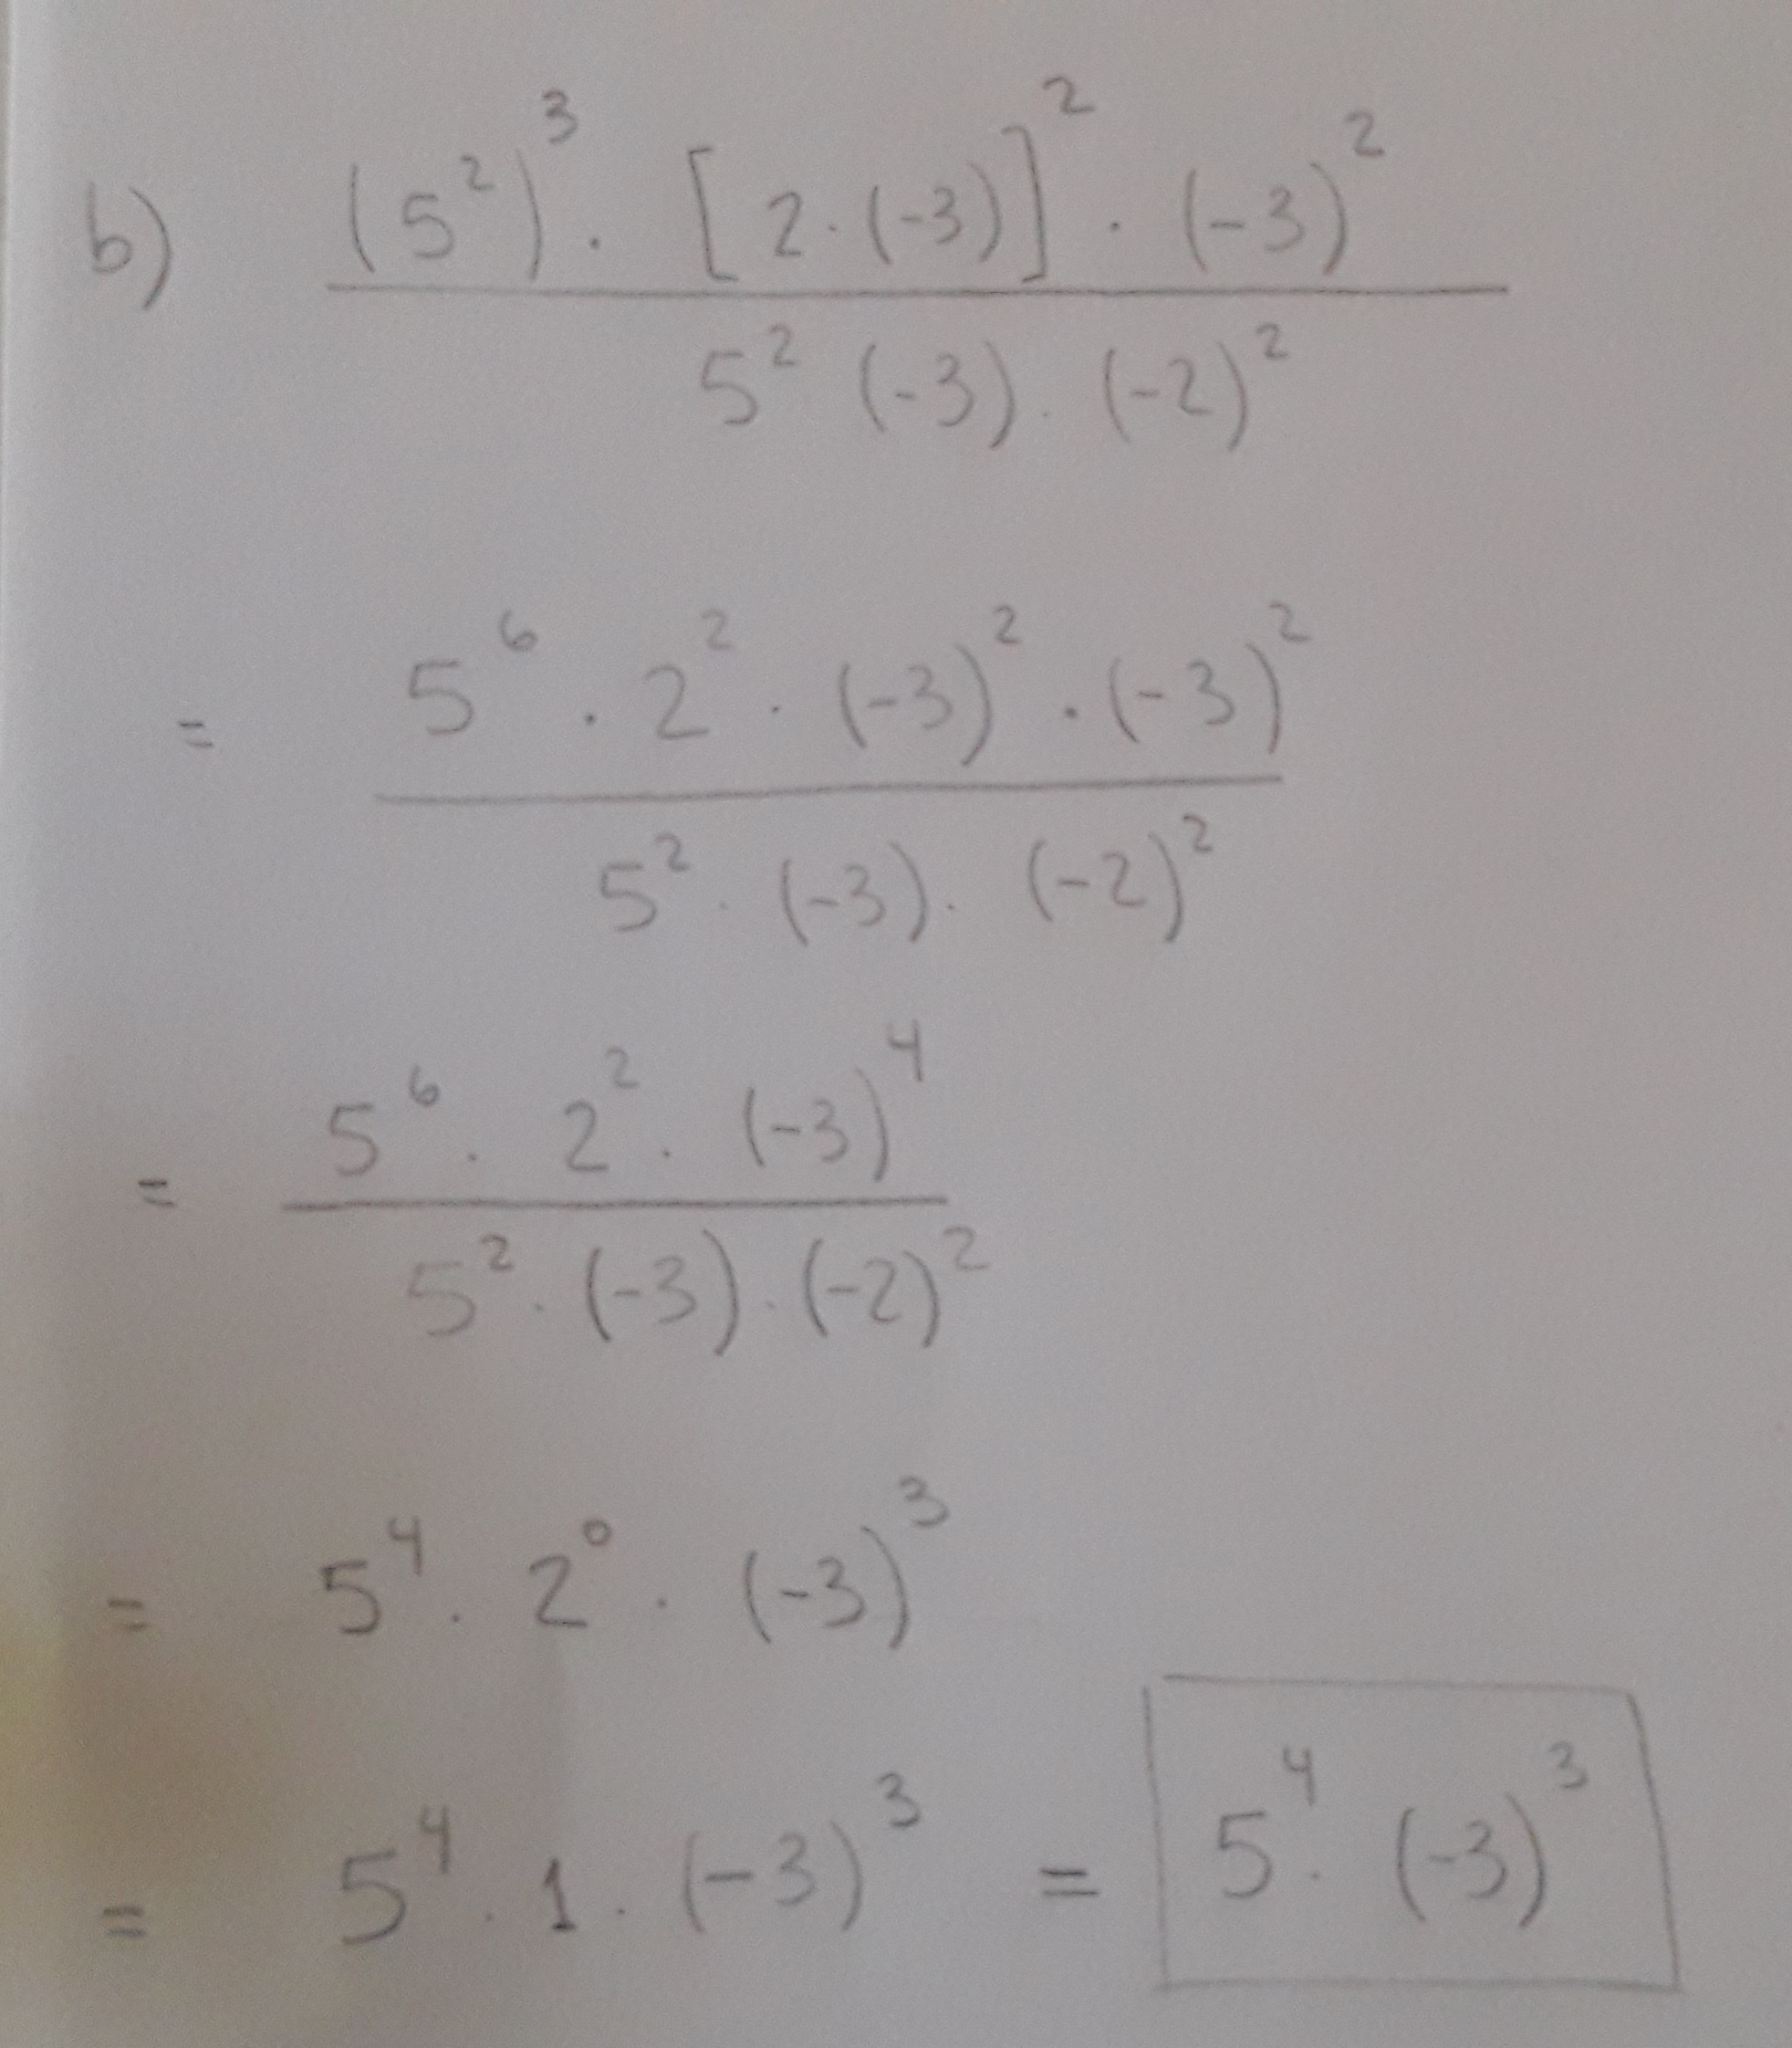 b) (5²)³ . [2.(-3)]² . (-3)²
5² (-3) . (-2)²
= 5⁶ . 2² . (-3)² . (-3)²
5² . (-3) . (-2)²
= 5⁶ . 2² . (-3)⁴
5² . (-3) . (-2)²
= 5⁴ . 2⁰ . (-3)³
= 5⁴ . 1 . (-3)³ = 5⁴ . (-3)³